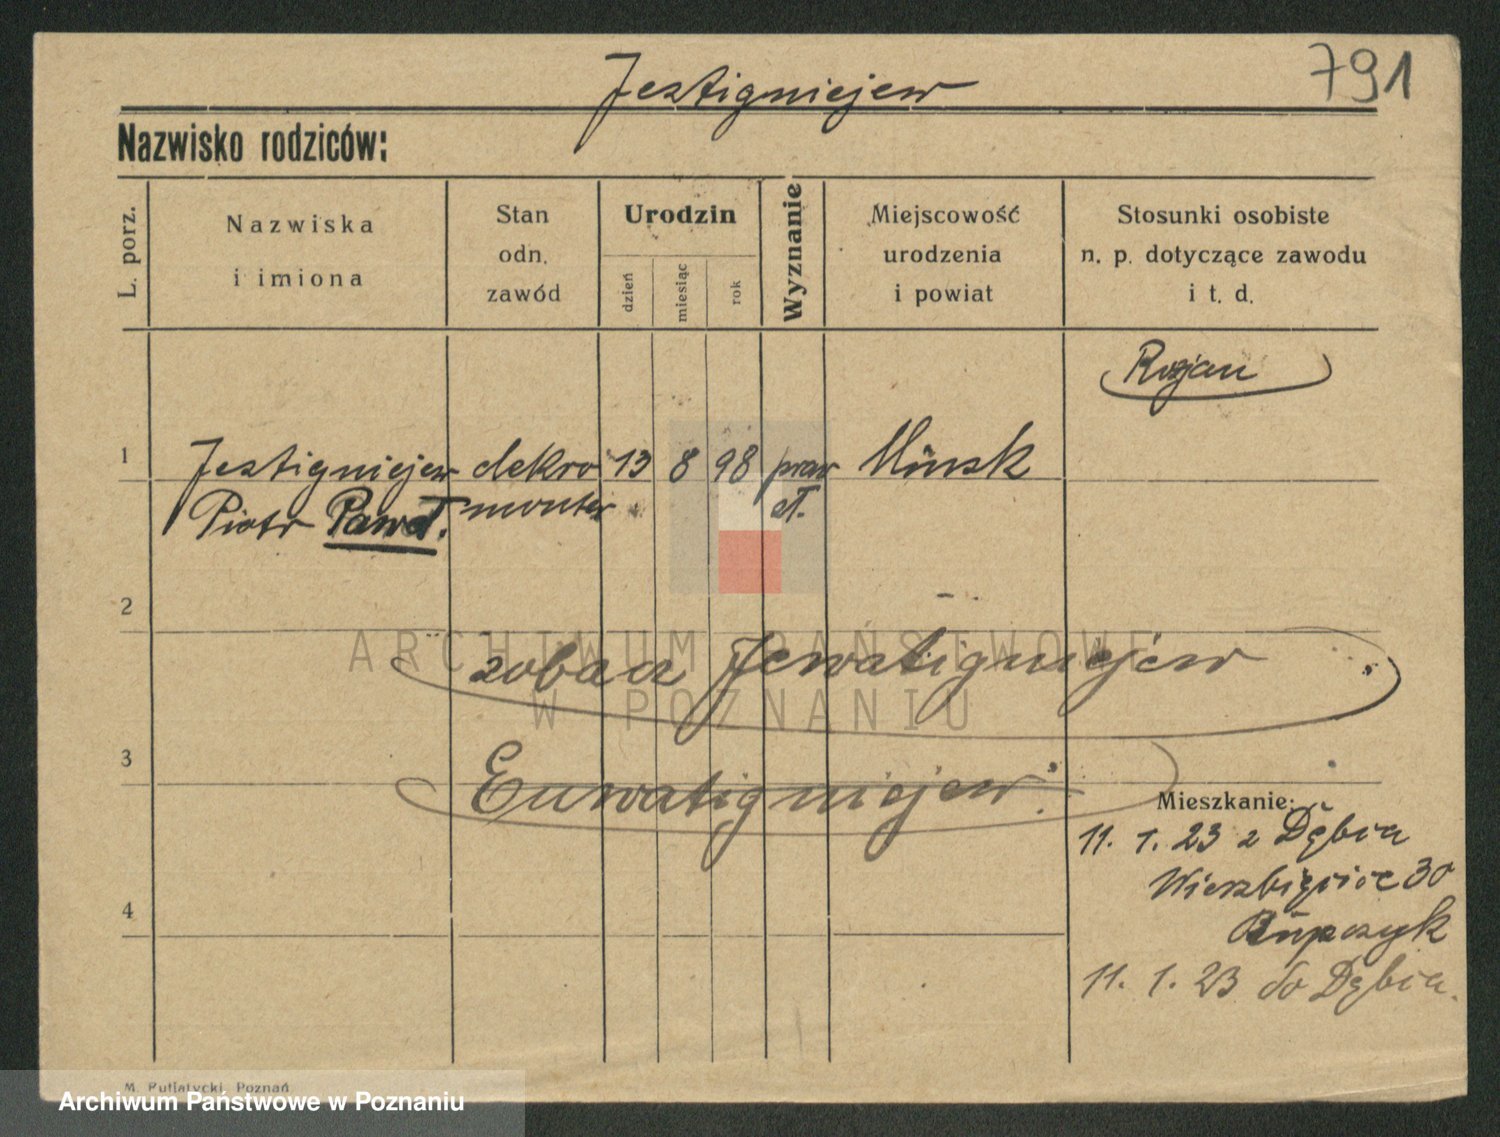 Jestigniejew
791
Nazwisko rodziców:
L. porz.
Nazwiska
i imiona
Stan
odn.
zawód
Urodzin
dzień
miesiąc
rok
Wyznanie
Miejscowość
urodzenia
i powiat
Stosunki osobiste
n. p. dotyczące zawodu
i t. d.
1
Jestigniejew
Piotr Paweł.
elektro
monter
13
8
98
praw
sł.
Mińsk
2
zobacz Jewatigniejew
3
Euwatigniejew
4
Mieszkanie:
11. 1. 23 z Dębia
Wierzbięcice 30
11. 1. 23 do Dębia.
ARCHIWUM PAŃSTWOWE
W POZNANIU
M. Putiatycki, Poznań
Archiwum Państwowe w Poznaniu